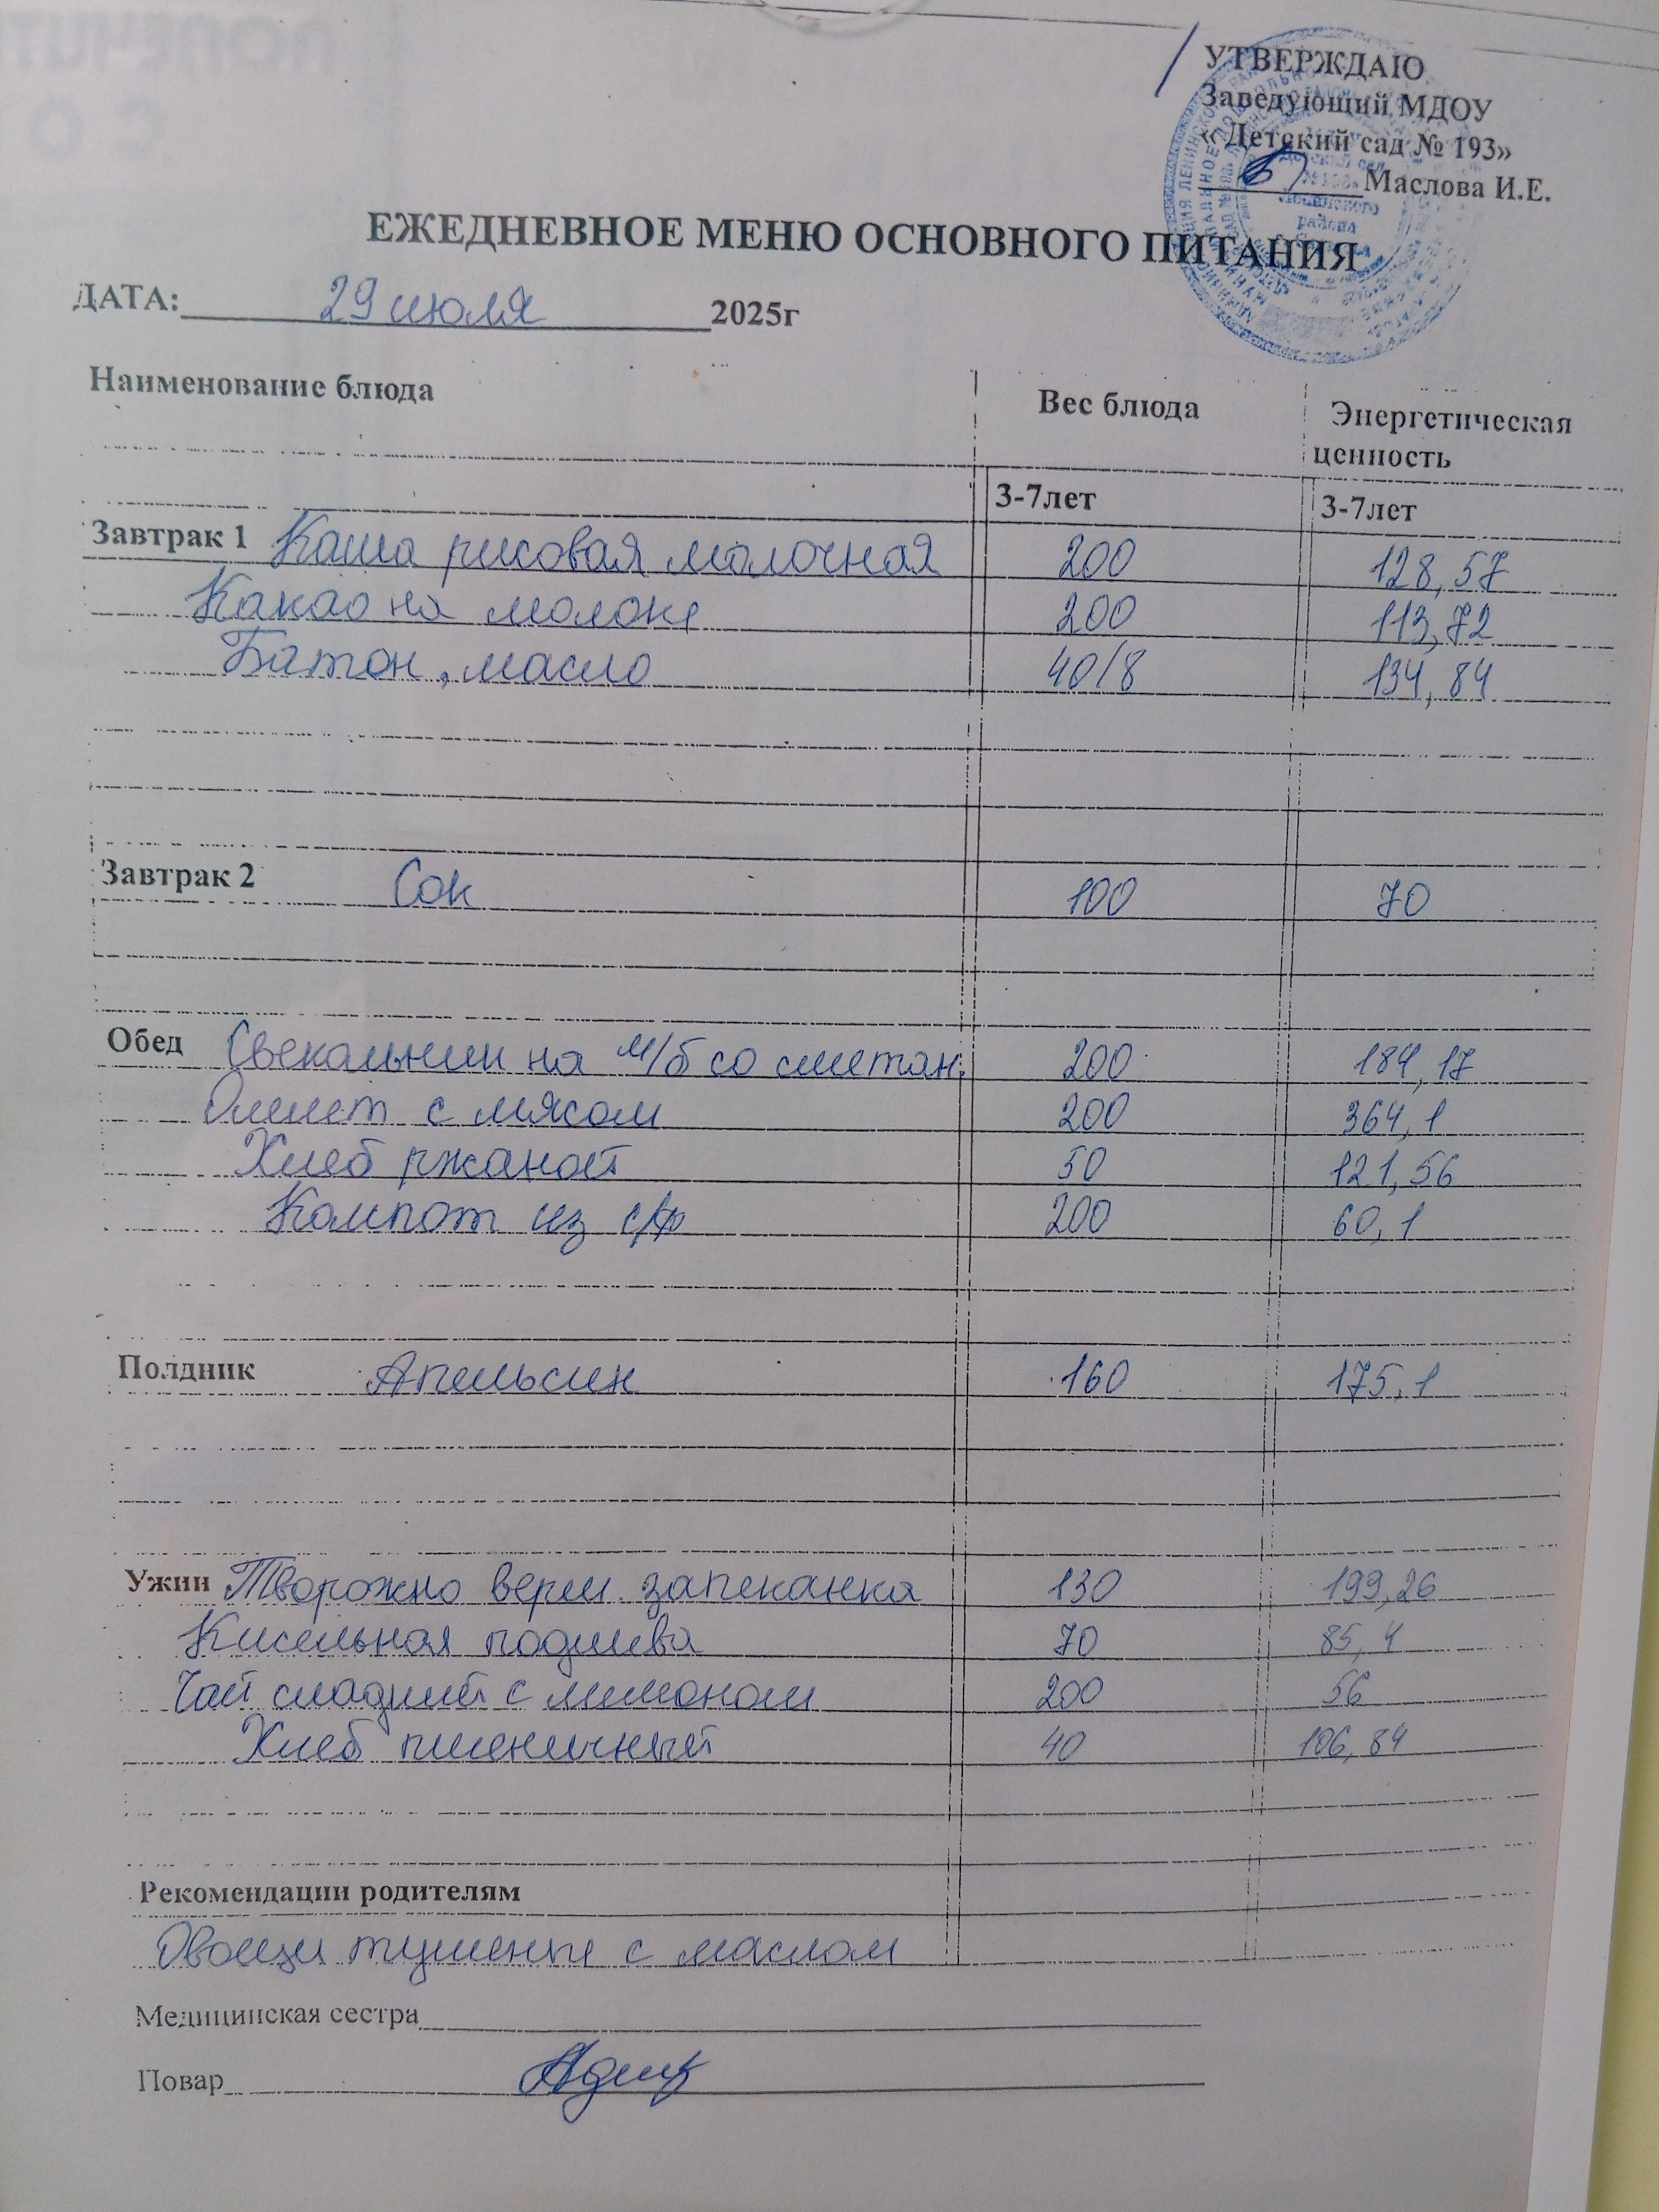 УТВЕРЖДАЮ
Заведующий МДОУ
«Детский сад № 193»
Маслова И.Е.
ЕЖЕДНЕВНОЕ МЕНЮ ОСНОВНОГО ПИТАНИЯ
ДАТА: 29 июля 2025г
Наименование блюда Вес блюда Энергетическая
ценность
3-7лет 3-7лет
Завтрак 1 Каша рисовая молочная 200 128,57
Какао на молоке 200 113,72
Батон, масло 40/8 134,84
Завтрак 2 Сок 100 70
Обед Свекольник на м/б со сметан. 200 184,17
Омлет с мясом 200 364,1
Хлеб ржаной 50 121,56
Компот из с/ф 200 60,1
Полдник Апельсин 160 175,1
Ужин Творожно верм. запеканка 130 199,26
Кисельная подлива 70 85,4
Чай сладкий с лимоном 200 56
Хлеб пшеничный 40 106,84
Рекомендации родителям
Овощи тушеные с маслом
Медицинская сестра
Повар